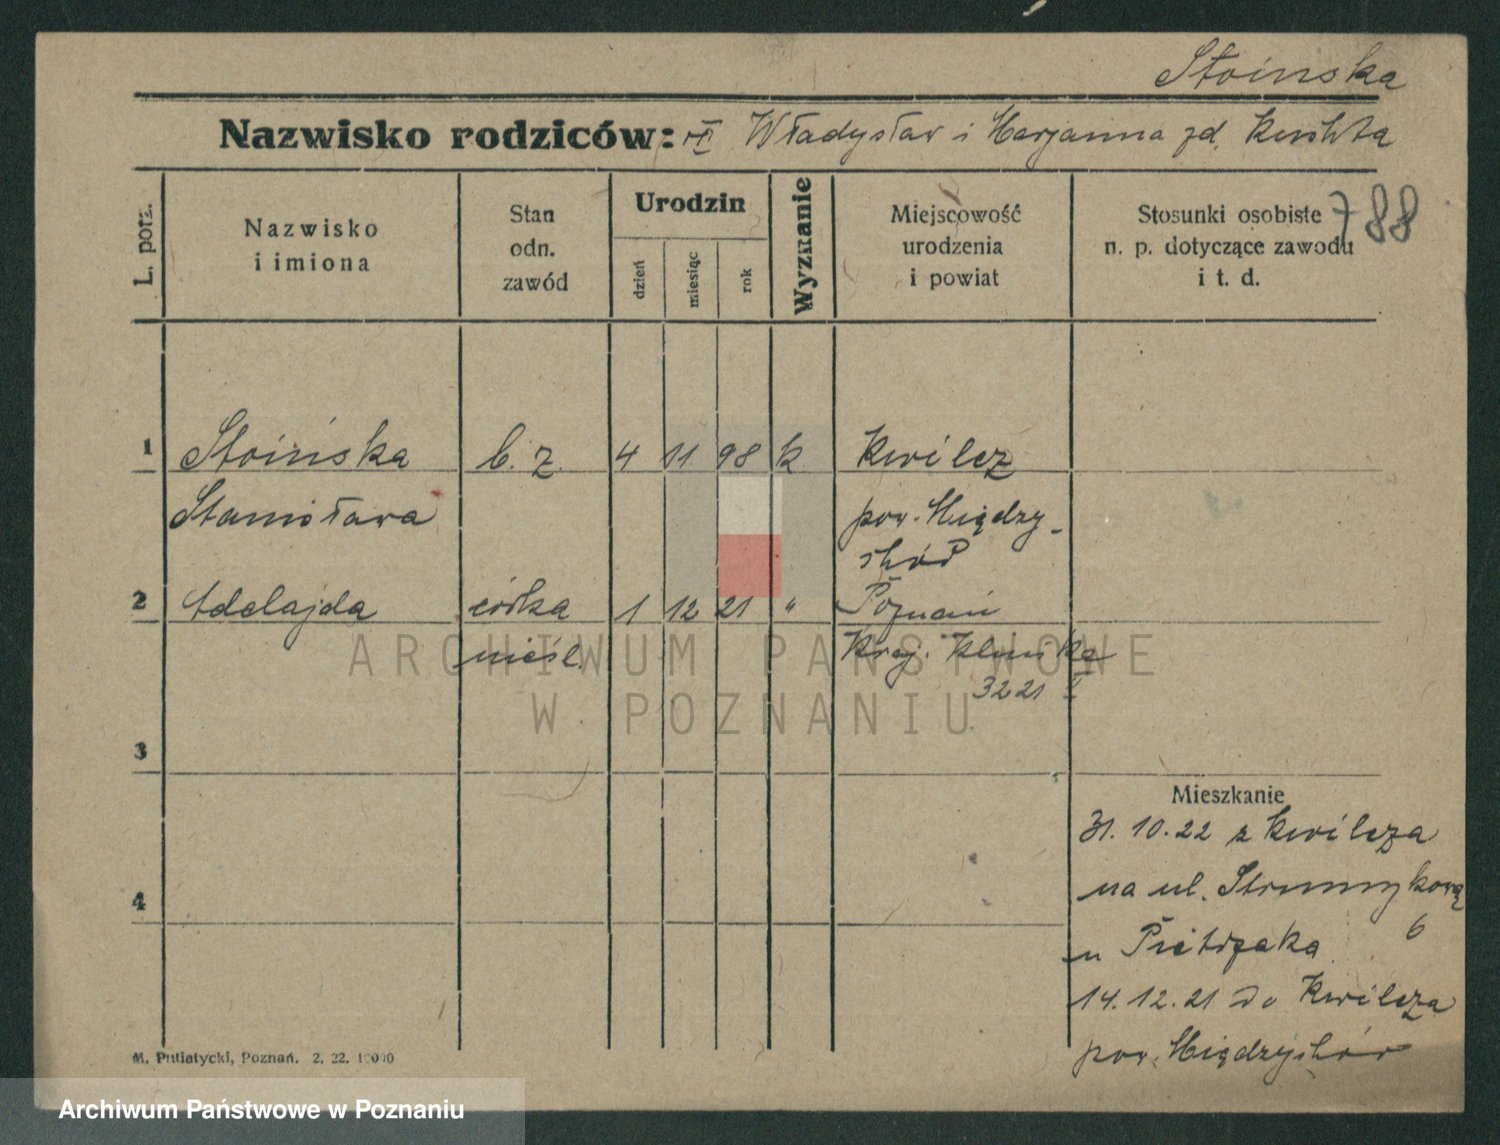 Stoinska
Nazwisko rodziców: Władysław i Marjanna zd.
788
L. porz.
Nazwisko
i imiona
Stan
odn.
zawód
Urodzin
dzień
miesiąc
rok
Wyznanie
Miejscowość
urodzenia
i powiat
Stosunki osobiste
n. p. dotyczące zawodu
i t. d.
1 Stoińska b. z. 4 11 98 k Kwilcz
Stanisława pow. Między-
chód
2 Adelajda córka 1 12 21 " Poznań
nieśl. Kraj. Klinika
3221
3
4
Mieszkanie
31. 10. 22 z Kwilcza
na ul. Strumykową
6
u Pietrzaka
14. 12. 21 do Kwilcza
pow. Międzychód
M. Putiatycki, Poznań. 2. 22. 10000
ARCHIWUM PAŃSTWOWE
W POZNANIU
Archiwum Państwowe w Poznaniu